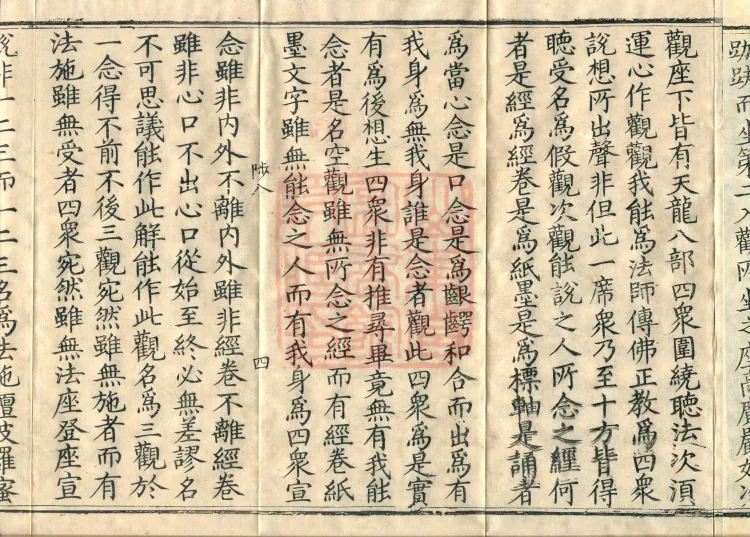 跏趺而坐第二
觀座下皆有天龍八部四衆圍繞聽法次湏
運心作觀觀我能爲法師傳佛正教爲四衆
說想所出聲非但此一席衆乃至十方皆得
聽受名爲假觀次觀能說之人所念之經何
者是經爲經卷是爲紙墨是爲標軸是誦者
爲當心念是口念是爲齦齶和合而出爲有
我身爲無我身誰是念者觀此四衆爲是實
有爲後想生四衆非有推尋畢竟無有我能
念者是名空觀雖無所念之經而有經卷紙
墨文字雖無能念之人而有我身爲四衆宣
陟八
四
念雖非内外不離内外雖非經卷不離經卷
雖非心口不出心口從始至終必無差謬名
不可思議能作此解能作此觀名爲三觀於
一念得不前不後三觀宛然雖無施者而有
法施雖無受者四衆宛然雖無法座登座宣
說非一二三而一二三名爲法施檀波羅蜜